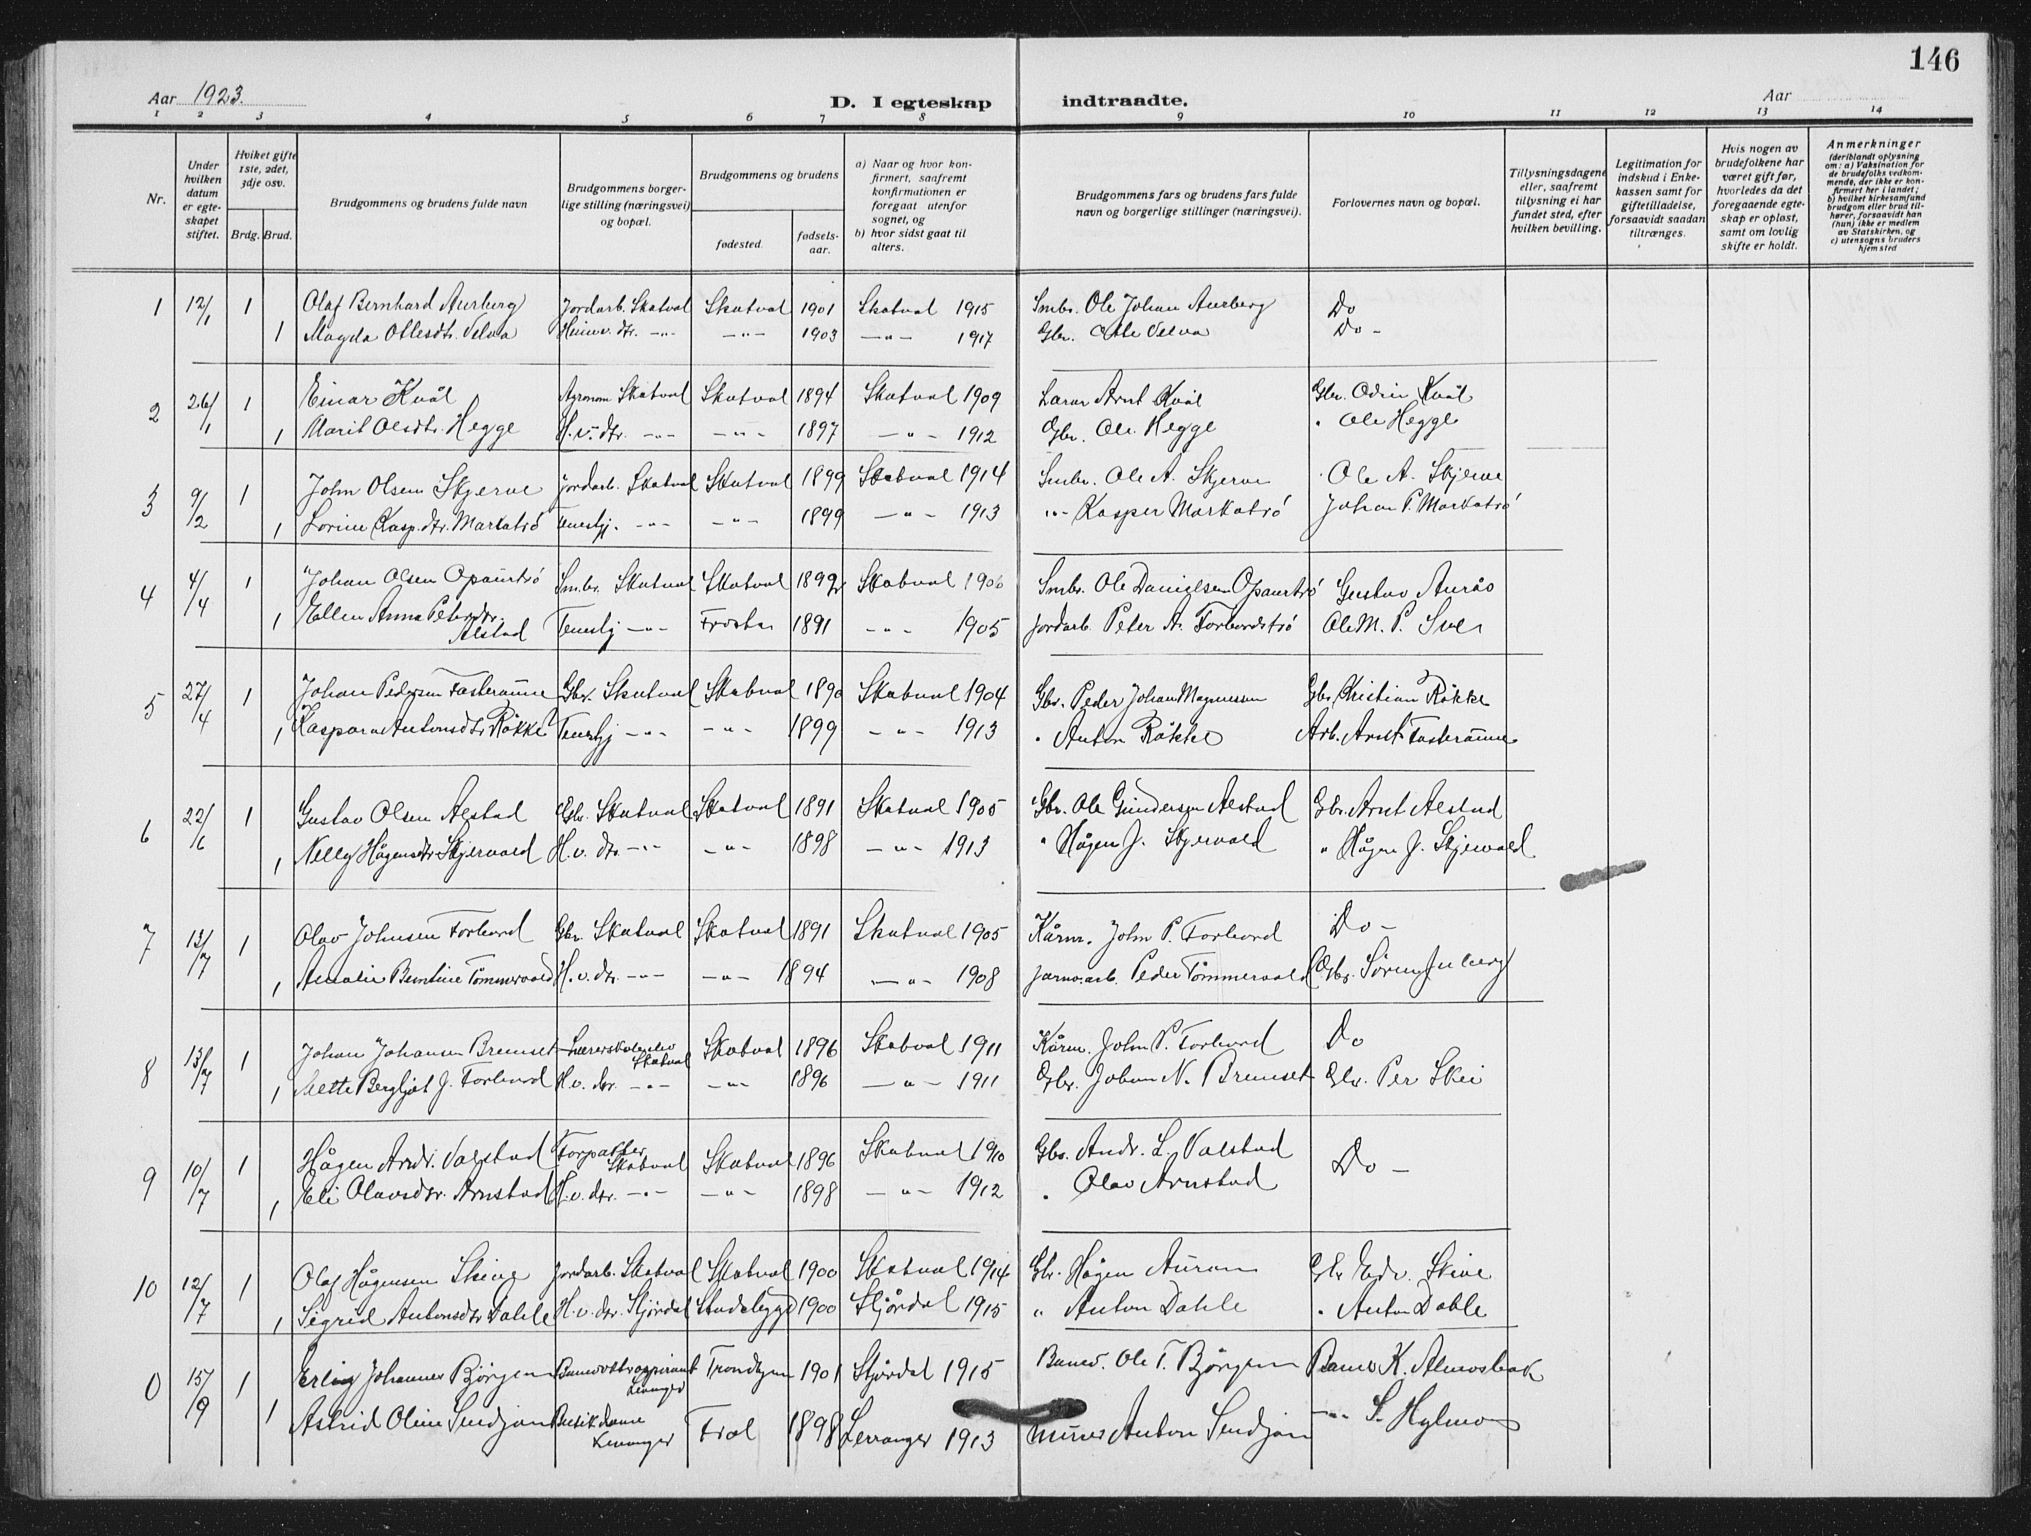 146
Aar 1923.
D. I egteskap indtraadte.
Aar
1 2 3 4 5 6 7 8 9 10 11 12 13 14
Nr.
Under hvilken datum er egteskapet stiftet.
Hviket gifte 1ste, 2det, 3dje osv.
Brdg. Brud.
Brudgommens og brudens fulde navn
Brudgommens borgerlige stilling (næringsvei) og bopæl.
Brudgommens og brudens
fødested.
fødselsaar.
a) Naar og hvor konfirmert, saafremt konfirmationen er foregaat utenfor sognet, og
b) hvor sidst gaat til alters.
Brudgommens fars og brudens fars fulde navn og borgerlige stillinger (næringsvei).
Forlovernes navn og bopæl.
Tillysningsdagene eller, saafremt tillysning ei har fundet sted, efter hvilken bevilling.
Legitimation for indskud i Enkekassen samt for giftetilladelse, forsaavidt saadan tiltrænges.
Hvis nogen av brudefolkene har været gift før, hvorledes da det foregaaende egteskap er opløst, samt om lovlig skifte er holdt.
Anmerkninger (deriblandt oplysning om: a) Vaksination for de brudefolks vedkommende, der ikke er konfirmert her i landet; b) hvilket kirkesamfund brudgom eller brud tilhører, forsaavidt han (hun) ikke er medlem av Statskirken, og c) utensogns bruders hjemsted
1 12/1 1 Olaf Bernhard Aurberg Jordarb. Skatval Skatval 1901 Skatval 1915 Smbr. Ole Johan Aurberg Do
1 Magda Ollesdtr. Velva Heimv. dtr. -"- -"- 1903 -"- 1917 Gbr. Velva Do -
2 26/1 1 Einar Kvål Agronom Skatval Skatval 1894 Skatval 1909 Lærer Arnt Kvål Gbr. Odin Kvål
1 Marit Olsdtr. Hegge H.v. dtr. -"- -"- 1897 -"- 1912 Gbr. Ole Hegge " Ole Hegge
3 9/2 1 John Olsen Skjerve Jordarb. Skatval Skatval 1899 Skatval 1914 Smbr. Ole A. Skjerve Ole A. Skjerve
1 Lorine Kasp.dtr. Markatrø Tenestj. -"- -"- 1899 -"- 1913 -"- Kasper Markatrø Johan P. Markatrø
4 4/4 1 Johan Olsen Opaurtrø Smbr. Skatval Skatval 1892 Skatval 1906 Smbr. Ole Danielsen Opaurtrø Gustav Aurås
1 Ellen Anna Petersdtr. Alstad Tenestj -"- Frosta 1891 -"- 1905 Jordarb. Peter A. Forbordstrø Ole M. P.
5 27/4 1 Johan Pedersen Fasteraune Gbr. Skatval Skatval 1890 Skatval 1904 Gbr. Peder Johan Magnussen Gbr. Christian Røkke
1 Kaspara Antonsdtr Røkke Tenestj -"- -"- 1899 -"- 1913 " Anton Røkke Arb. Arnt Fasteraune
6 22/6 1 Gustav Olsen Alstad Gbr. Skatval Skatval 1891 Skatval 1905 Gbr. Ole Gundersen Alstad Gbr. Arnt Alstad
1 Nelly Hågensdtr Skjervold H.v. dtr. -"- -"- 1898 -"- 1913 " Hågen J. Skjervold " Hågen J. Skjervold
7 13/7 1 Olav Johnsen Forbord Gbr. Skatval Skatval 1891 Skatval 1905 Kårm. John P. Forbord Do -
1 Amalie Berntine Tømmervold H.v. dtr. -"- -"- 1894 -"- 1908 Jarnv.arb. Peder Tømmervold Gbr. Søren
8 13/7 1 Johan Johansen Bremset Lærerskoleelev Skatval Skatval 1896 Skatval 1911 Kårm. John P. Forbord Do
1 Mette Bergljot J. Forbord H.v. dtr. -"- -"- 1896 -"- 1911 Gbr. Johan N. Bremset Gbr. Per Skei
9 10/7 1 Hågen Andr. Valstad Forpakter Skatval Skatval 1896 Skatval 1910 Gbr. Andr. L. Valstad Do -
1 Eli Olavsdtr. Arnstad H.v. dtr. -"- -"- 1898 -"- 1912 " Olav Arnstad
10 12/7 1 Olaf Hågensen Skive Jordarb. Skatval Skatval 1900 Skatval 1914 Gbr. Hågen Auran Gbr Edv. Skive
1 Sigrid Antonsdtr Dahle H.v. dtr. Stjørdal Stadsbygd 1900 Stjørdal 1915 " Anton Dahle " Anton Dahle
0 15/9 1 Erling Johannes Bjørgen Levanger Trondhjem 1901 Stjørdal 1915 Banev. Ole T. Bjørgen K. Almosbak
1 Astrid Oline Sendjan Butikdame Levanger Frol 1898 Levanger 1913 Murer Anton Sendjan -"- S. Hylmo